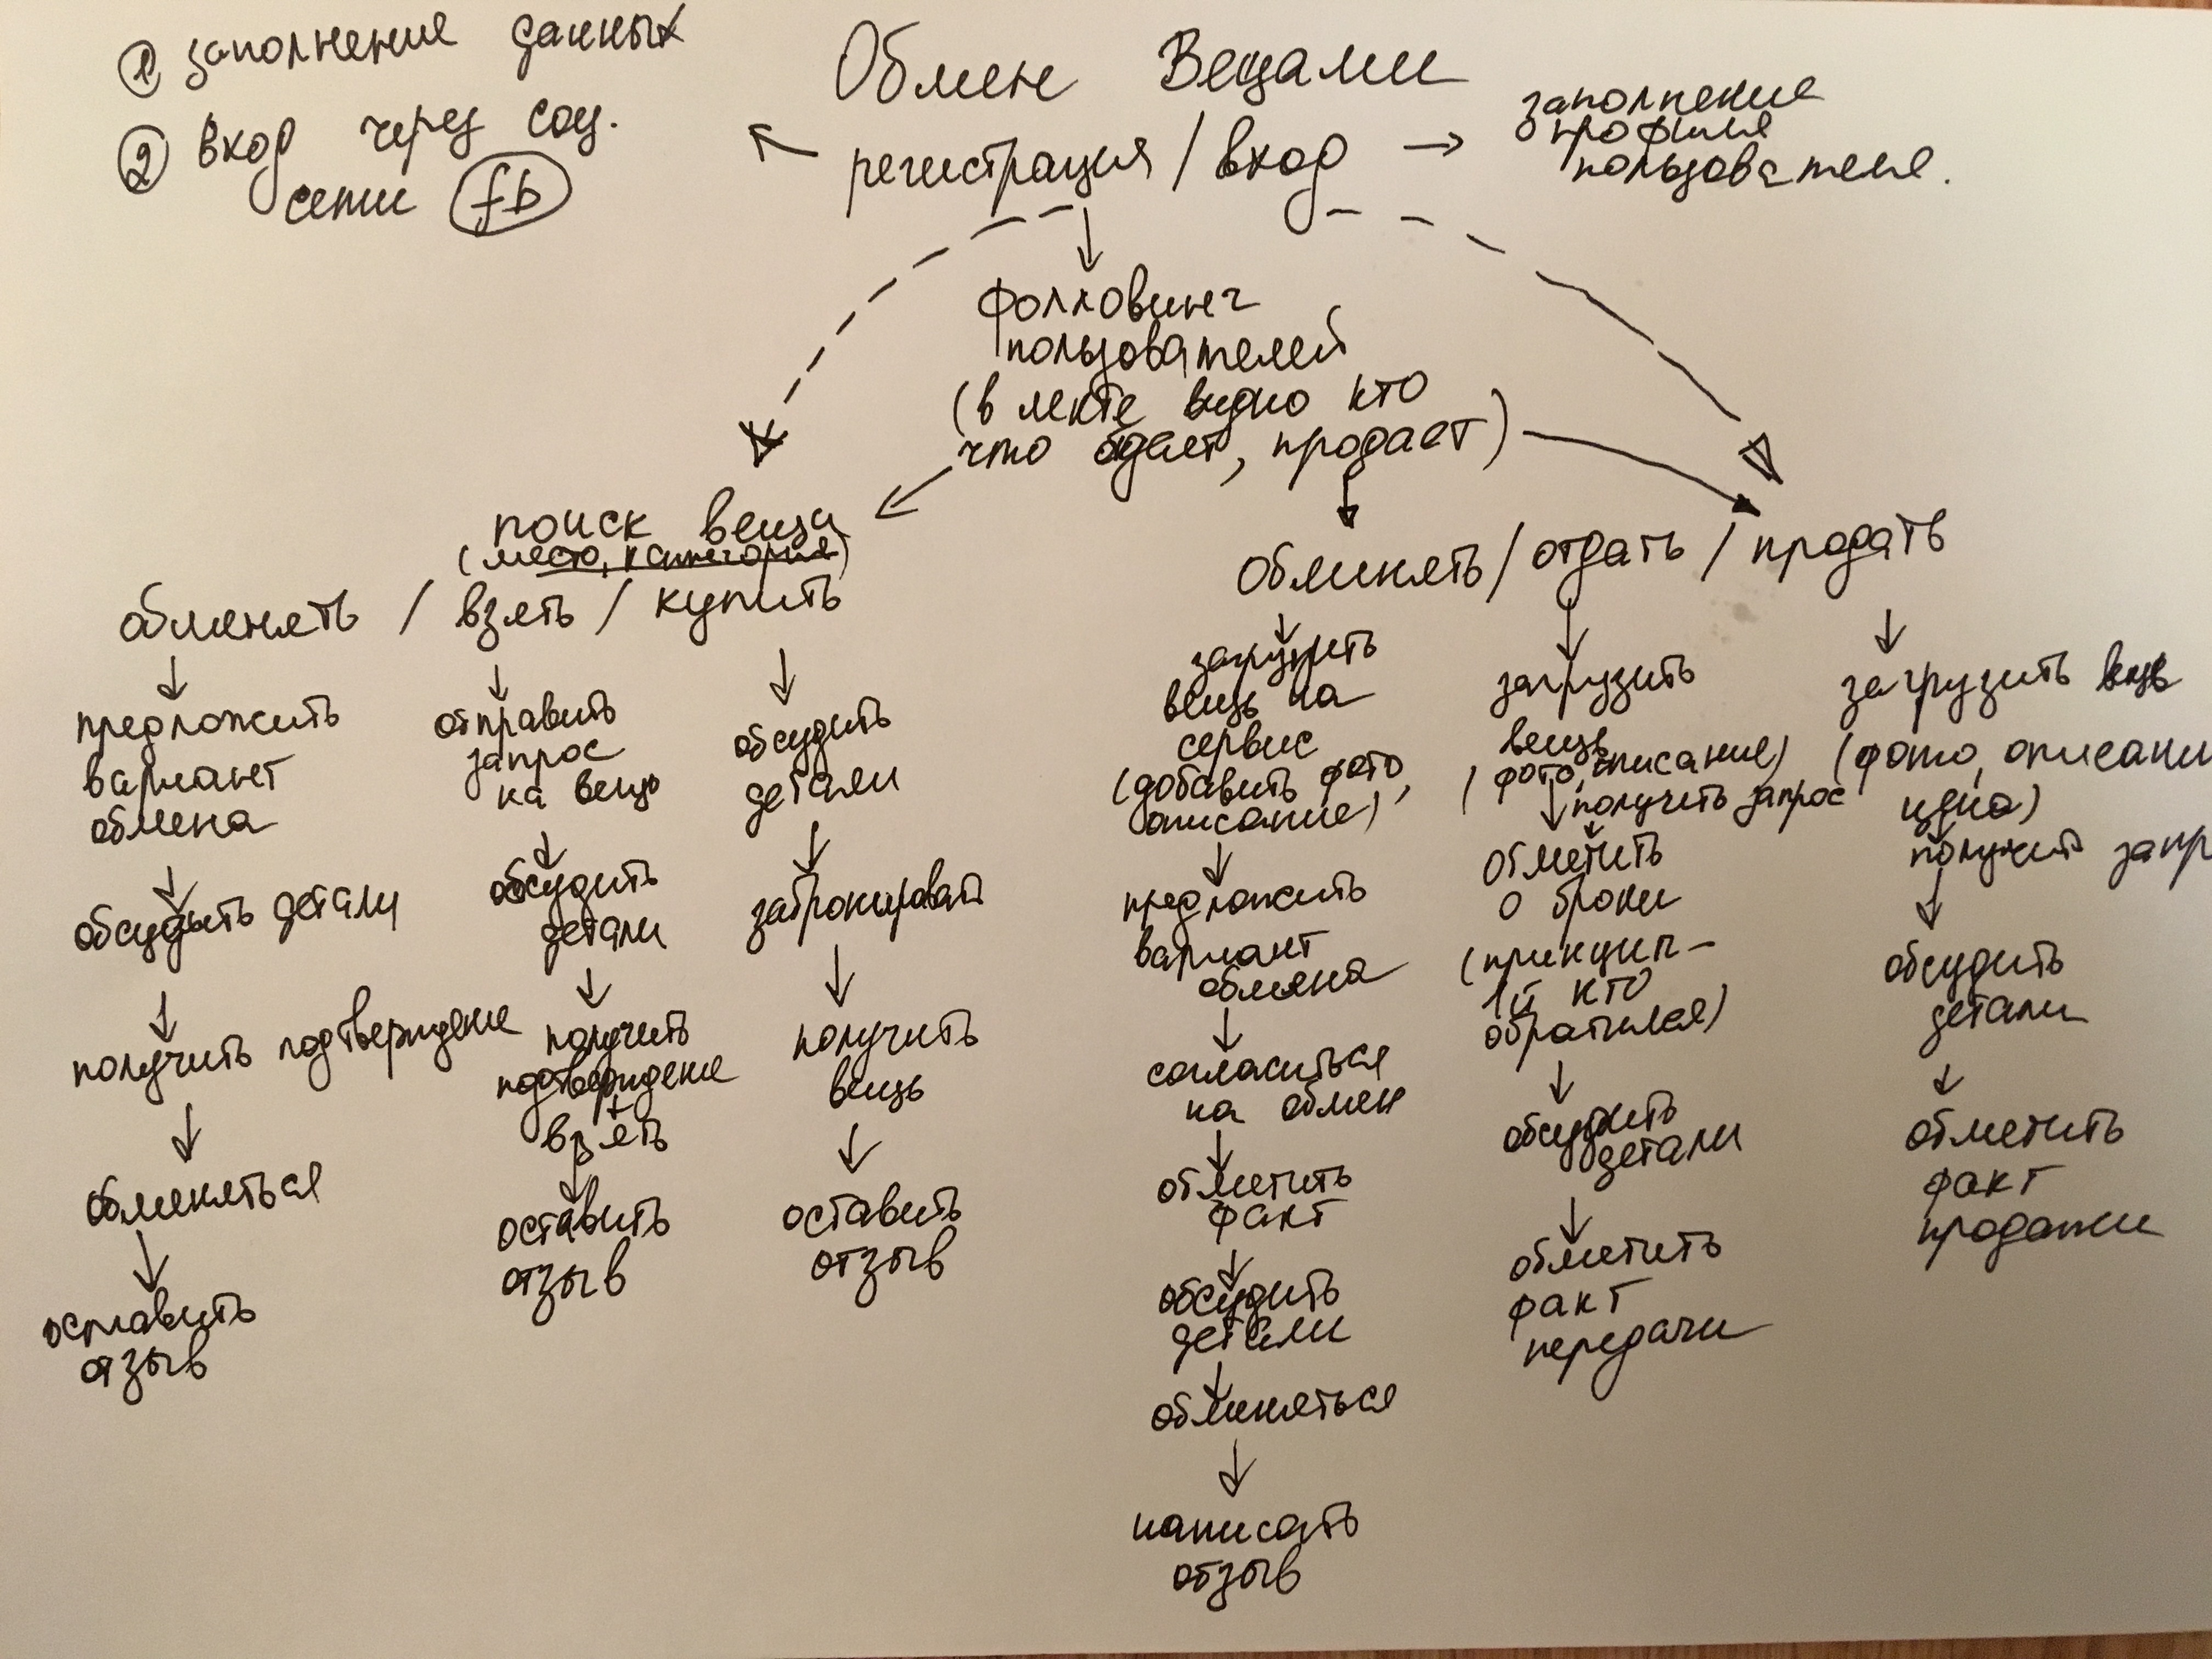 Обмен Вещами
① заполнение данных
② вход через соц.
сети fb
регистрация / вход
заполнение
профиля
пользователя.
фолловинг
пользователей
(в ленте видно кто
что отдает, продает)
поиск вещи
(место, категория)
обменять / взять / купить
предложить
вариант
обмена
обсудить детали
получить подтверждение
обменяться
оставить
отзыв
отправить
запрос
на вещь
обсудить
детали
получить
подтверждение
+
взять
оставить
отзыв
обсудить
детали
забронировать
получить
вещь
оставить
отзыв
обменять / отдать / продать
загрузить
вещь на
сервис
(добавить фото,
описание)
предложить
вариант
обмена
согласиться
на обмен
отметить
факт
обсудить
детали
обменяться
написать
отзыв
загрузить
вещь
(фото, описание)
получить запрос
отметить
о брони
(принцип -
1й кто
обратился)
обсудить
детали
отметить
факт
передачи
загрузить вещь
(фото, описани
цена)
получить запр
обсудить
детали
отметить
факт
продажи